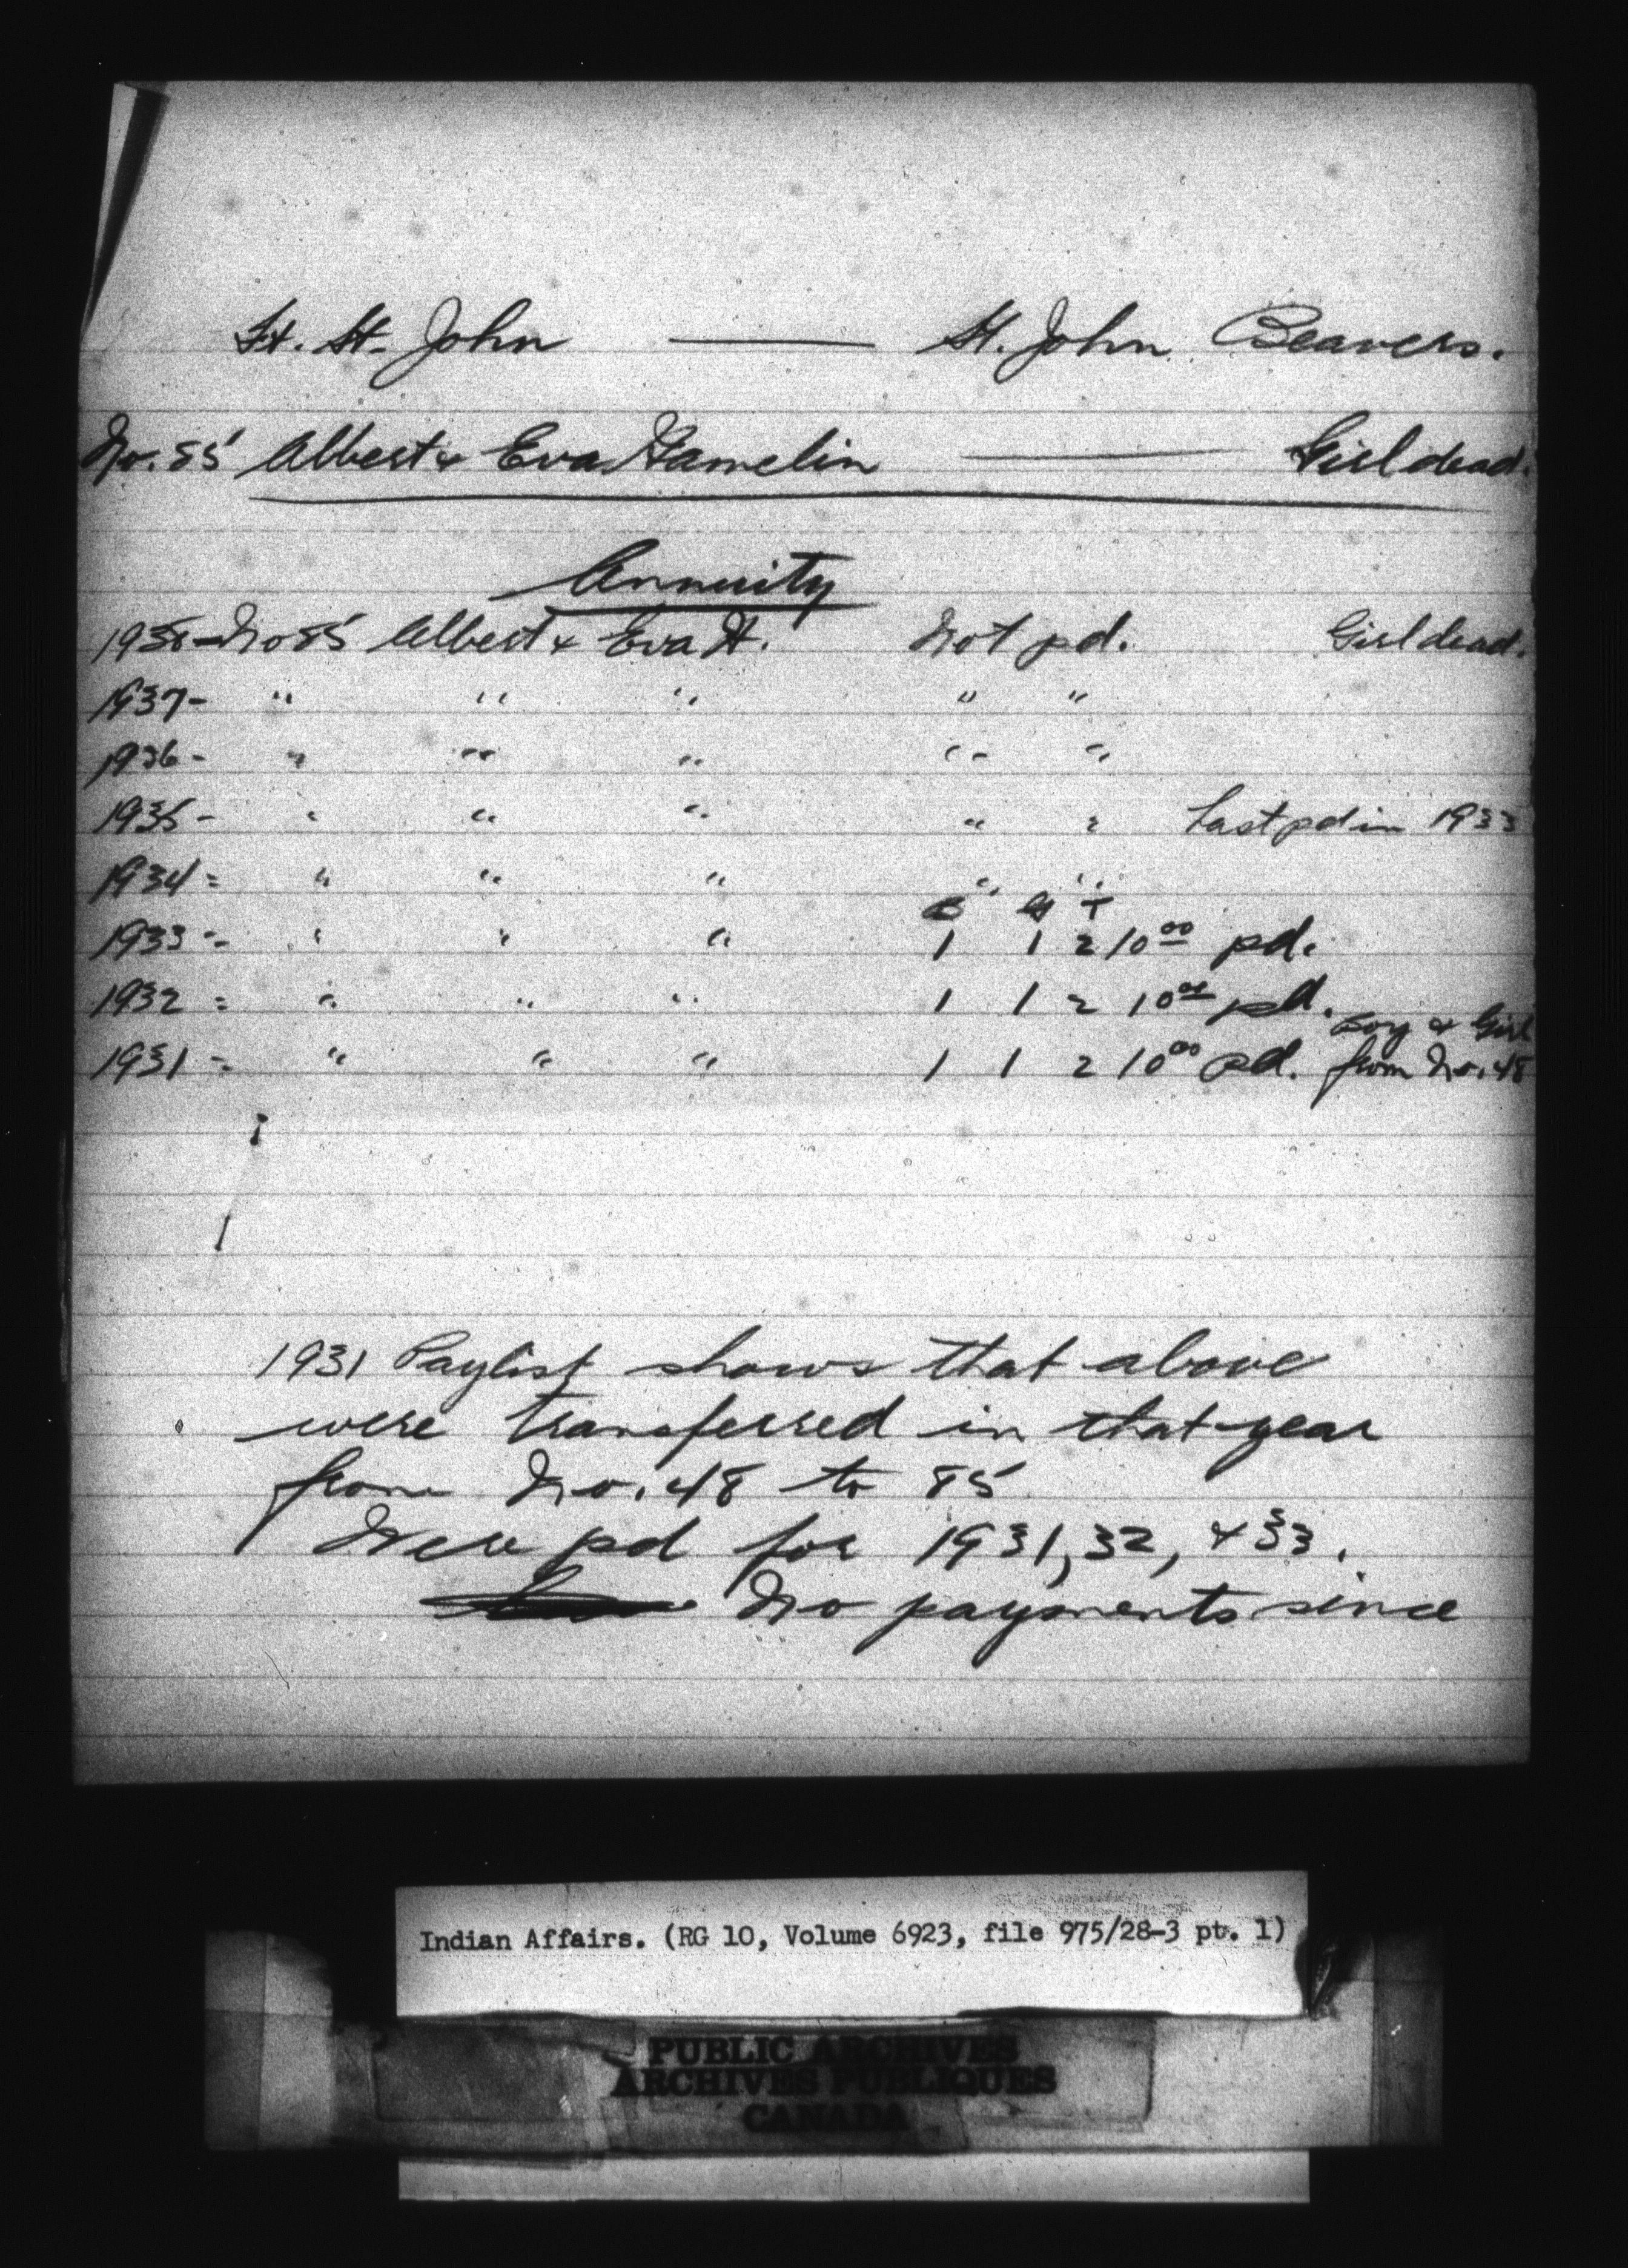 Ft. St. John — St. John Beavers.
No. 85 Albert & Eva Hamelin — Girl dead.
Annuity
1938 - No 85 Albert & Eva H. Not pd. Girl dead.
1937 - " " " " "
1936 - " " " " "
1935 - " " " " " Last pd in 1933
1934 = " " " " "
B G T
1933 - " " " 1 1 2 10 00 pd.
1932 = " " " 1 1 2 10 00 pd.
Boy & Girl
1931 - " " " 1 1 2 10 00 pd. from No. 48
1931 Paylist shows that above
were transferred in that year
from No. 48 to 85
Were pd for 1931, 32, & 33.
No payments since
Indian Affairs. (RG 10, Volume 6923, file 975/28-3 pt. 1)
PUBLIC ARCHIVES
ARCHIVES PUBLIQUES
CANADA